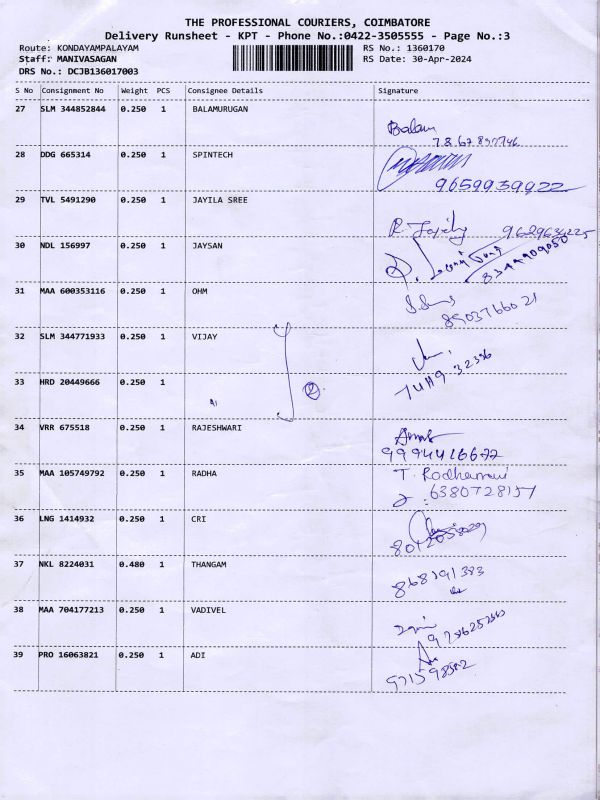 THE PROFESSIONAL COURIERS, COIMBATORE
Delivery Runsheet - KPT - Phone No.:0422-3505555 - Page No.:3
Route: KONDAYAMPALAYAM RS No.: 1360170
Staff: MANIVASAGAN RS Date: 30-Apr-2024
DRS No.: DCJB136017003
S No Consignment No Weight PCS Consignee Details Signature
27 SLM 344852844 0.250 1 BALAMURUGAN
Balam
28 DDG 665314 0.250 1 SPINTECH
9659939922
29 TVL 5491290 0.250 1 JAYILA SREE
30 NDL 156997 0.250 1 JAYSAN
31 MAA 600353116 0.250 1 OHM
8903766021
32 SLM 344771933 0.250 1 VIJAY
33 HRD 20449666 0.250 1
34 VRR 675518 0.250 1 RAJESHWARI
9994416677
35 MAA 105749792 0.250 1 RADHA
T. Radhamani
6380728157
36 LNG 1414932 0.250 1 CRI
37 NKL 8224031 0.480 1 THANGAM
868191383
38 MAA 704177213 0.250 1 VADIVEL
39 PRO 16063821 0.250 1 ADI